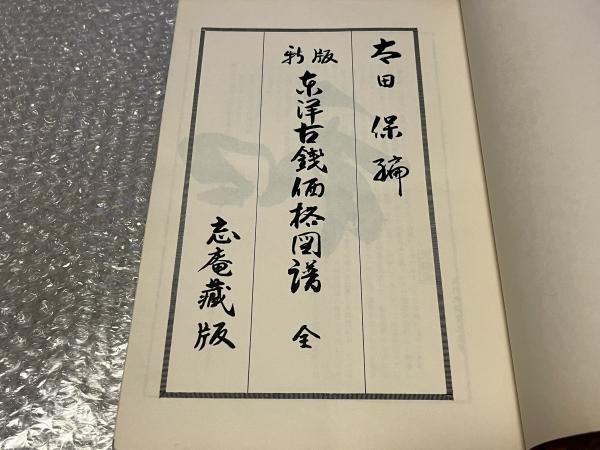 太田 保編
新版
東洋古銭価格図譜 全
志庵蔵版